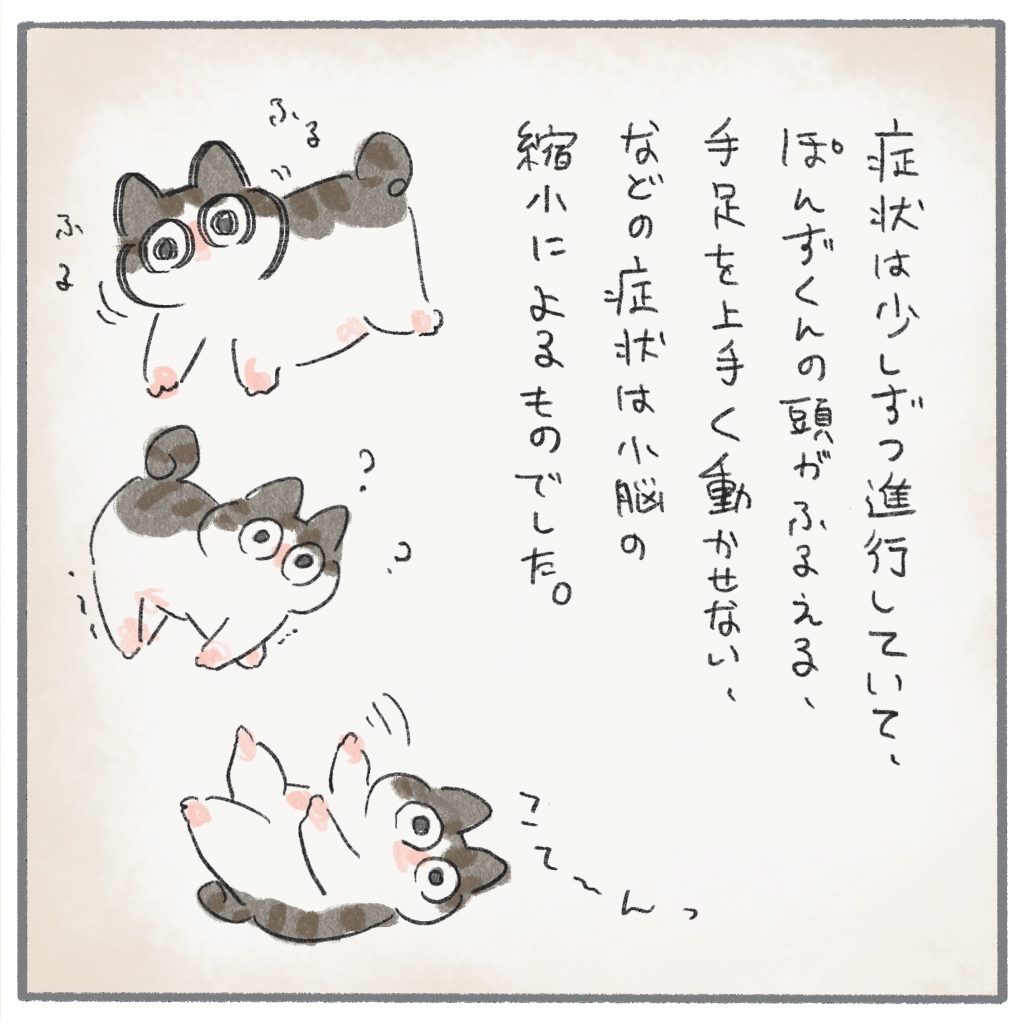 症状は少しずつ進行していて、
ぽんずくんの頭がふるえる、
手足を上手く動かせない、
などの症状は小脳の
縮小によるものでした。
ふる
ふる
?
?
こてーんっ